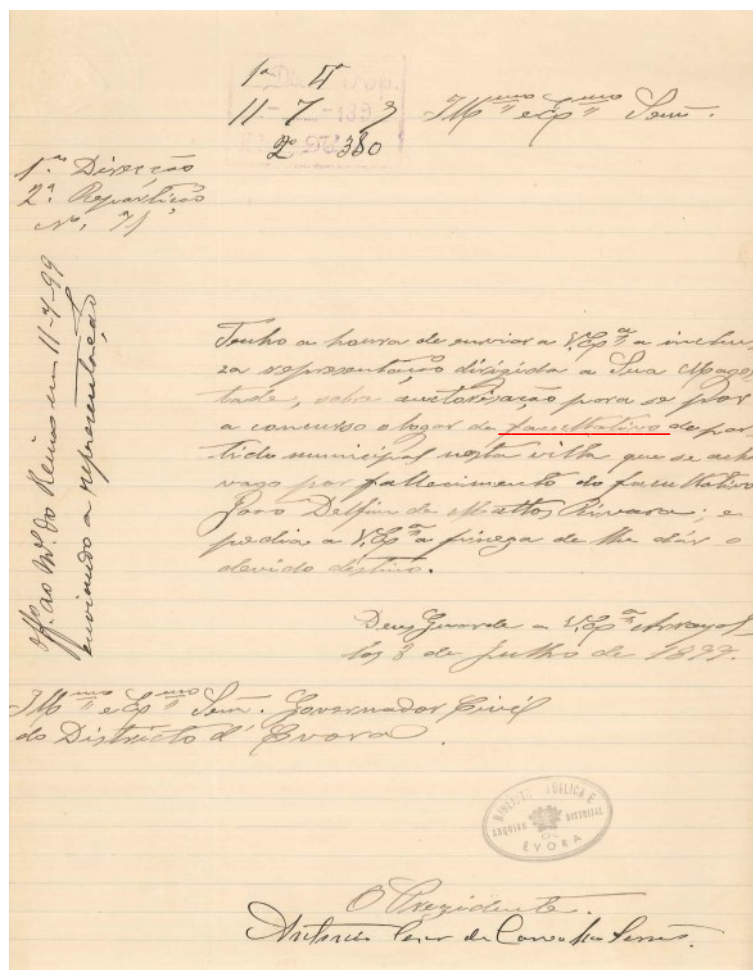 1ª 4ª
11 7 9
2º 380
Illmo e Exmo Senr.
1ª Direcção
2ª Repartição
Nº. 71
Offº. ao Mº. do Reino em 11-7-99
enviando a representação
Tenho a honra de enviar a V. Exª a inclu
za representação dirigida a Sua Mages
tade, sobre auctorisação para se pôr
a concurso o logar de facultativo de par
tido municipal nesta villa que se acha
vago por fallecimento do facultativo
João Delfim de Mattos Rivara; e
pedia a V. Exª a fineza de lhe dár o
devido destino.
Deus Guarde a V. Exª Arrayol
los 8 de Julho de 1899.
Illmo e Exmo Senr. Governador Civil
do Districto d'Evora.
BIBLIOTECA PÚBLICA E
ARQUIVO DISTRITAL
DE
ÉVORA
O Prezidente.
Antonio de